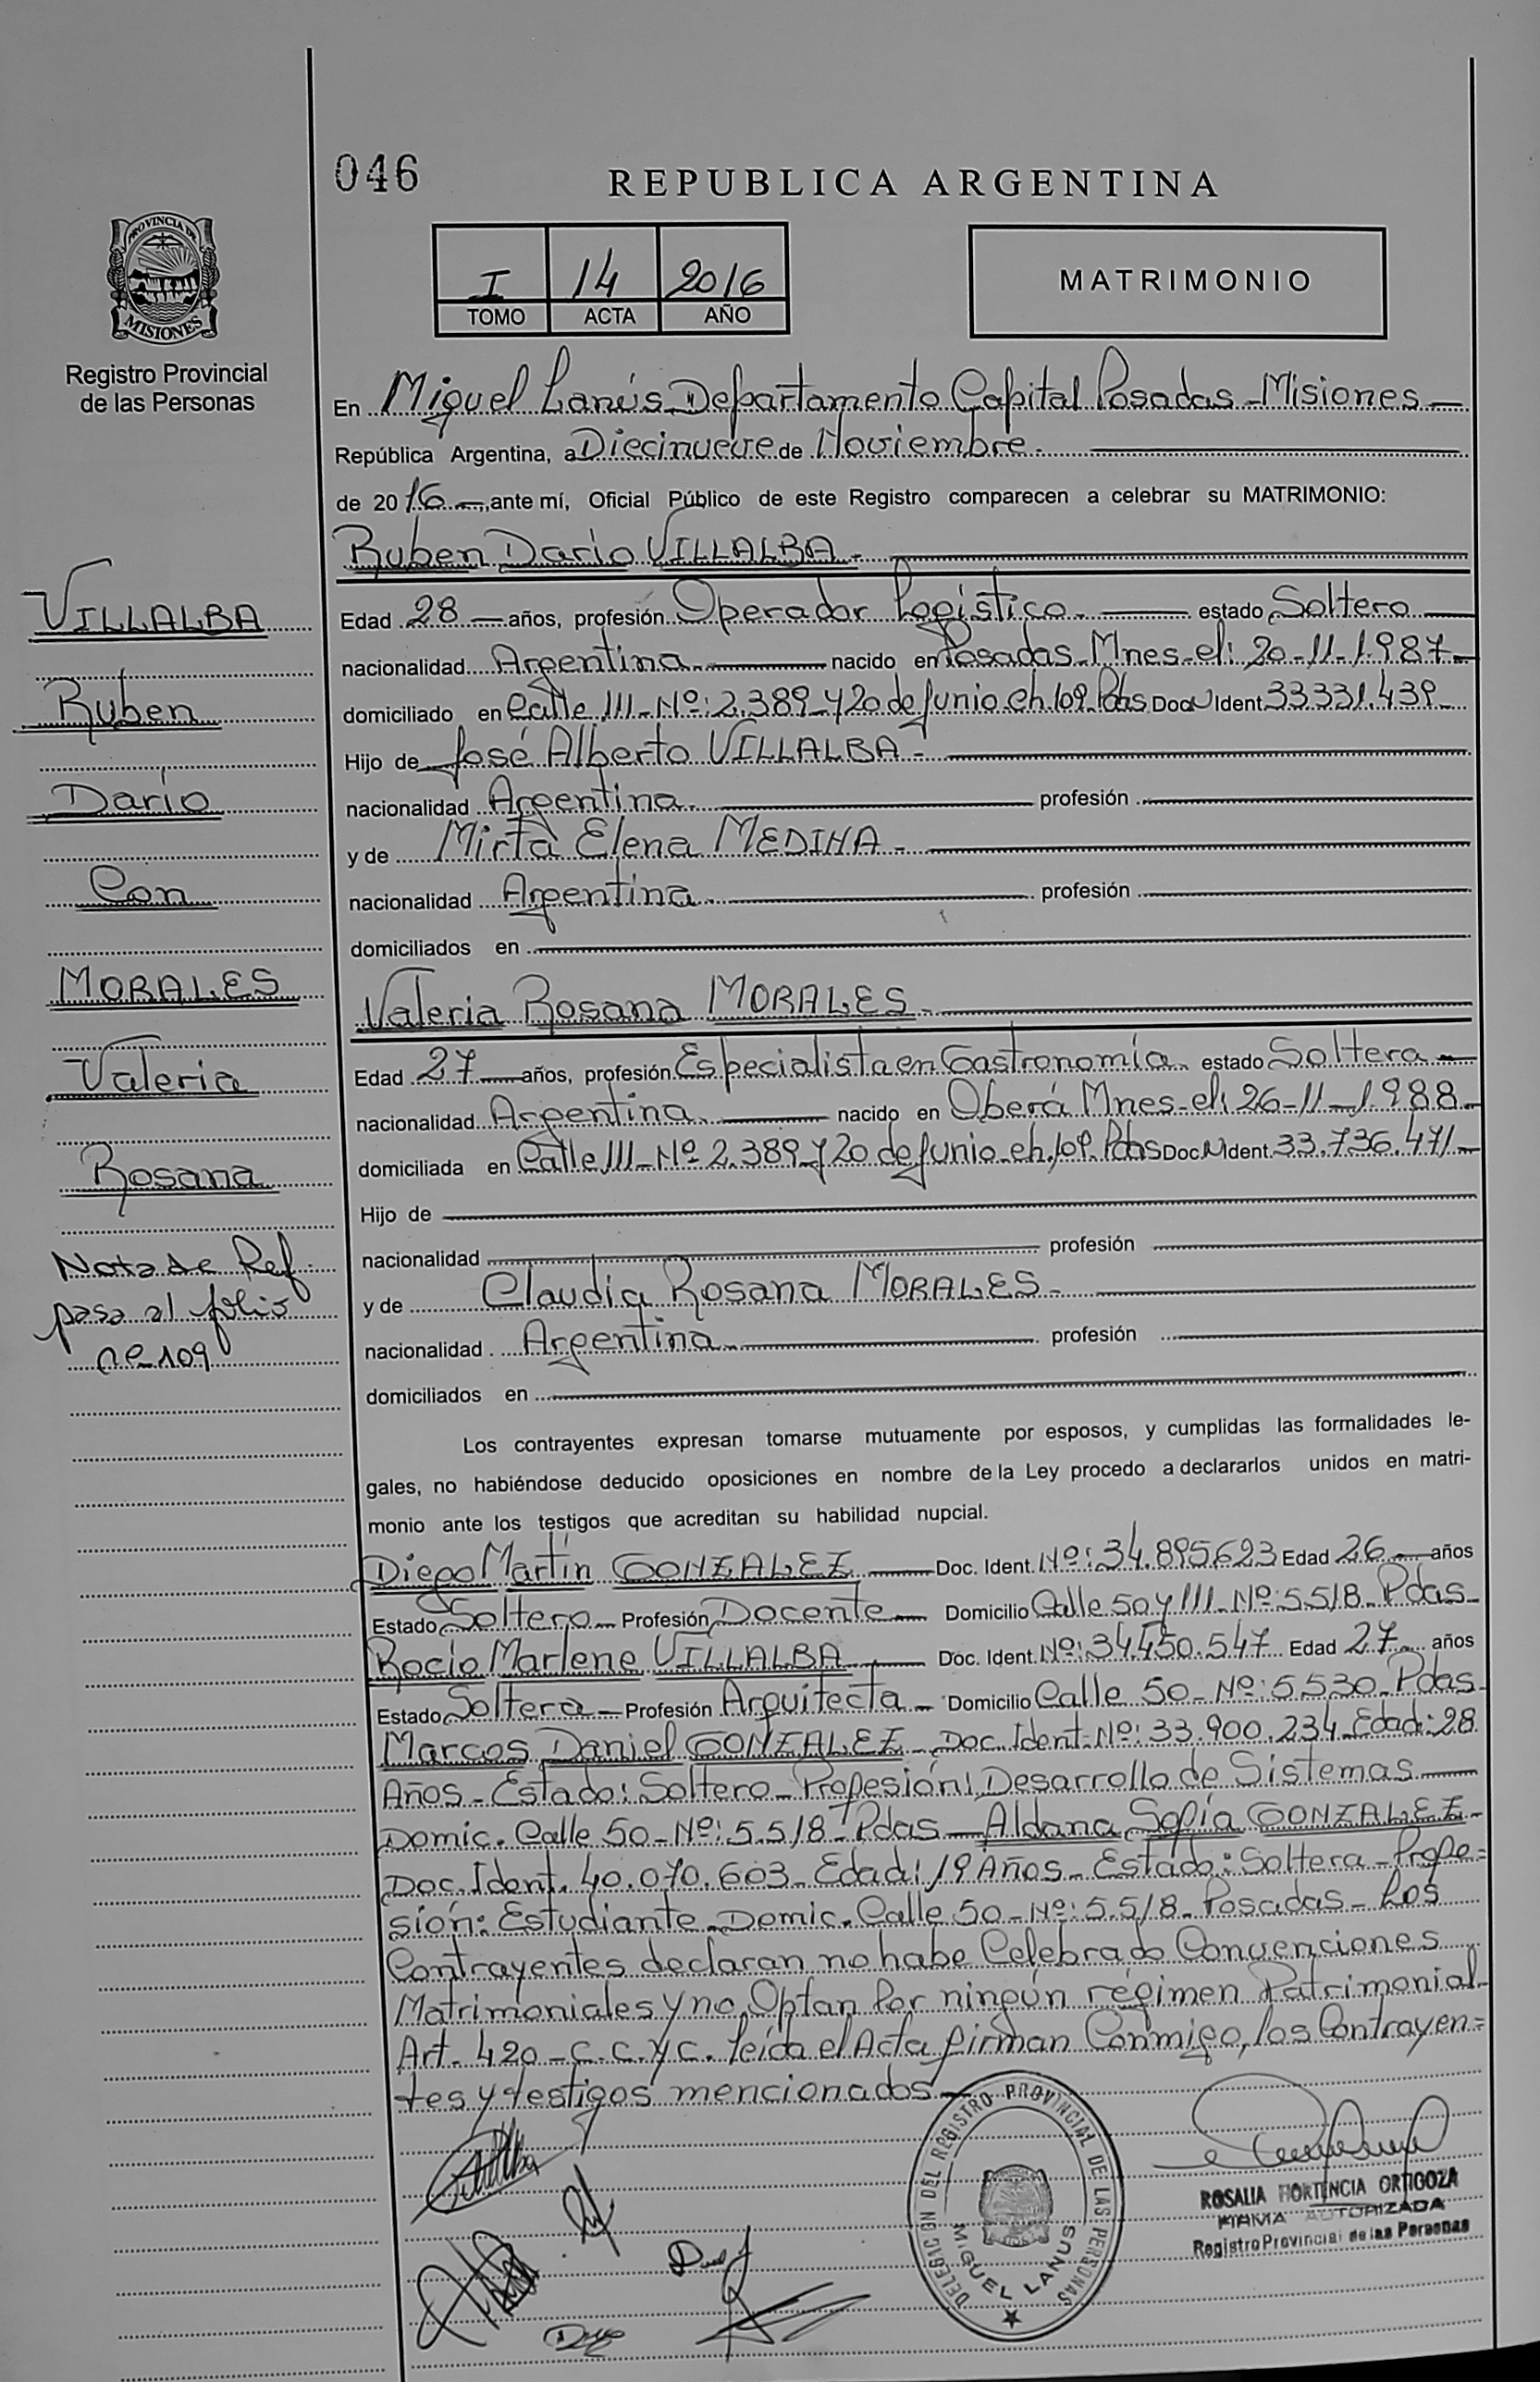 046
REPUBLICA ARGENTINA
PROVINCIA DE
MISIONES
Registro Provincial
de las Personas
I 14 2016
TOMO ACTA AÑO
MATRIMONIO
En Miguel Lanús Departamento Capital Posadas - Misiones -
República Argentina, a Diecinueve de Noviembre.
de 2016 - , ante mí, Oficial Público de este Registro comparecen a celebrar su MATRIMONIO:
Ruben Dario VILLALBA -
Edad 28 - años, profesión Operador Logístico. - estado Soltero -
nacionalidad Argentina - nacido en Posadas - Mnes - el: 20-11-1987 -
domiciliado en Calle 111 - Nº: 2.389 y 20 de Junio ch. 109. Pdas Doc N Ident. 33331.439 -
Hijo de José Alberto VILLALBA -
nacionalidad Argentina. - profesión -
y de Mirta Elena MEDINA -
nacionalidad Argentina. - profesión -
domiciliados en -
Valeria Rosana MORALES -
Edad 27 - años, profesión Especialista en Gastronomía. estado Soltera -
nacionalidad Argentina. - nacido en Oberá Mnes - el: 26-11-1988 -
domiciliada en Calle 111 - Nº 2.389 y 20 de Junio - ch. 109. Pdas Doc N Ident. 33.736.471 -
Hijo de -
nacionalidad - profesión -
y de Claudia Rosana MORALES -
nacionalidad Argentina - profesión -
domiciliados en -
Los contrayentes expresan tomarse mutuamente por esposos, y cumplidas las formalidades le-
gales, no habiéndose deducido oposiciones en nombre de la Ley procedo a declararlos unidos en matri-
monio ante los testigos que acreditan su habilidad nupcial.
Diego Martín GONZALEZ - Doc. Ident. Nº: 34.895.623 Edad 26 - años
Estado Soltero - Profesión Docente - Domicilio Calle 50 y 111 - Nº: 5.518 - Pdas -
Rocío Marlene VILLALBA - Doc. Ident. Nº: 34450.547 Edad 27 - años
Estado Soltera - Profesión Arquitecta - Domicilio Calle 50 - Nº: 5.530 - Pdas -
Marcos Daniel GONZALEZ - Doc. Ident. Nº: 33.900.234 - Edad: 28
Años - Estado: Soltero - Profesión: Desarrollo de Sistemas -
Domic. Calle 50 - Nº: 5.518 - Pdas - Aldana Sofía GONZALEZ -
Doc. Ident. 40.070.603 - Edad: 19 Años - Estado: Soltera - Profe=
sión: Estudiante - Domic. Calle 50 - Nº: 5.518 - Posadas - Los
Contrayentes declaran no habe Celebrado Convenciones
Matrimoniales y no Optan Por ningún régimen Patrimonial -
Art. 420 - C.C. y C. leída el Acta firman Conmigo, los Contrayen=
tes y testigos mencionados -
VILLALBA
Ruben
Dario
Con
MORALES
Valeria
Rosana
Nota de Ref.
pasa al folio
nº 109
DELEGACION DEL REGISTRO PROVINCIAL DE LAS PERSONAS
MIGUEL LANUS
ROSALIA HORTENCIA ORTIGOZA
FIRMA AUTORIZADA
Registro Provincial de las Personas